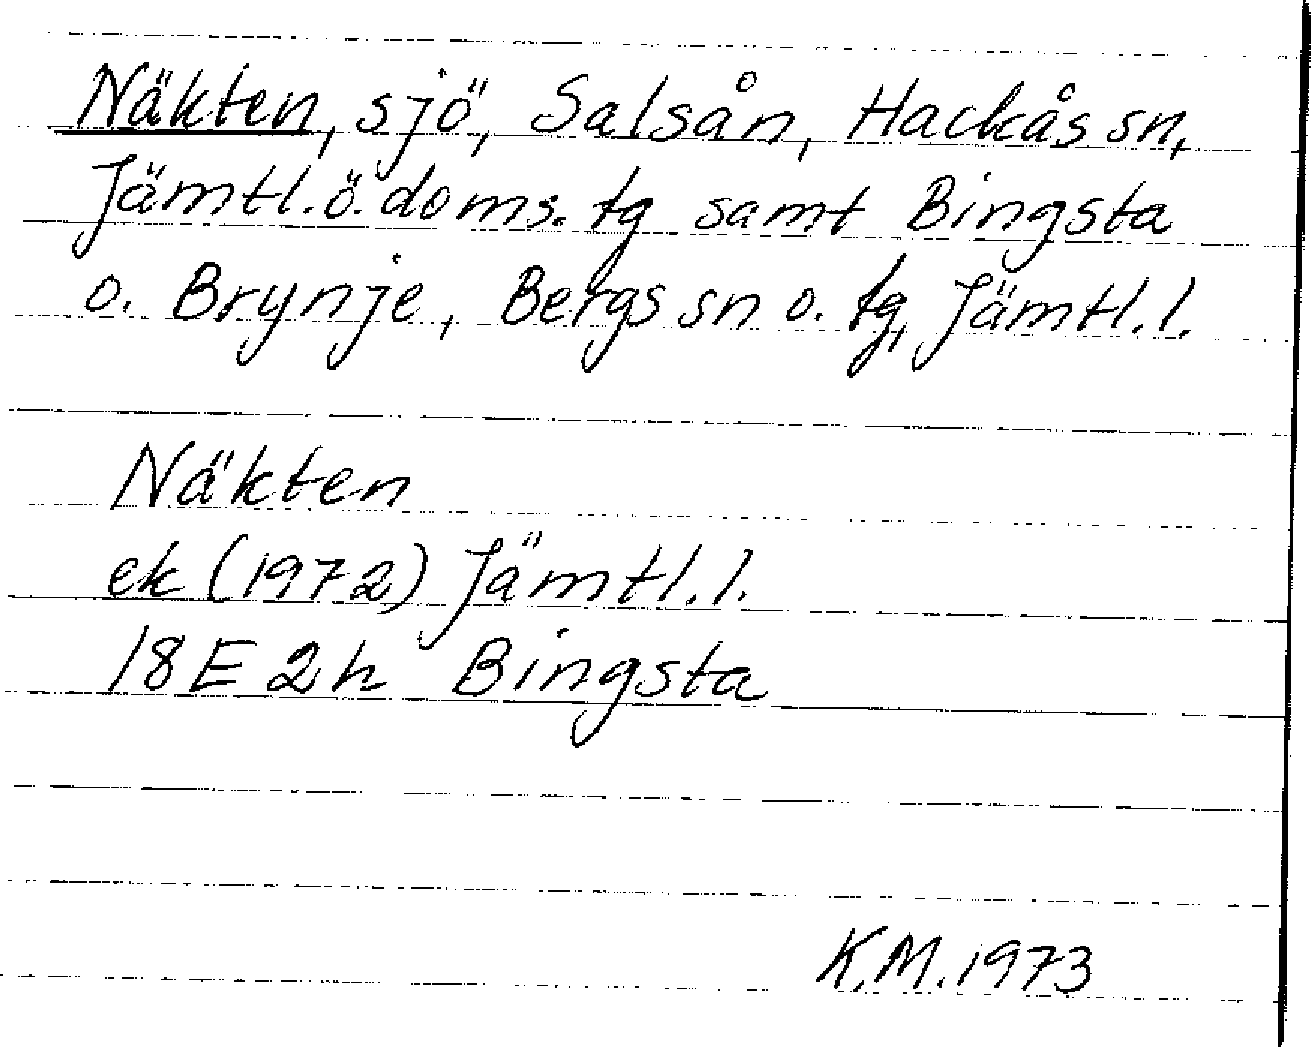 Näkten, sjö, Salsån, Hackås sn,
Jämtl.ö.doms.tg samt Bingsta
o. Brynje, Bergs sn o. tg, Jämtl.l.
Näkten
ek (1972) Jämtl.l.
18E 2h Bingsta
K.M. 1973